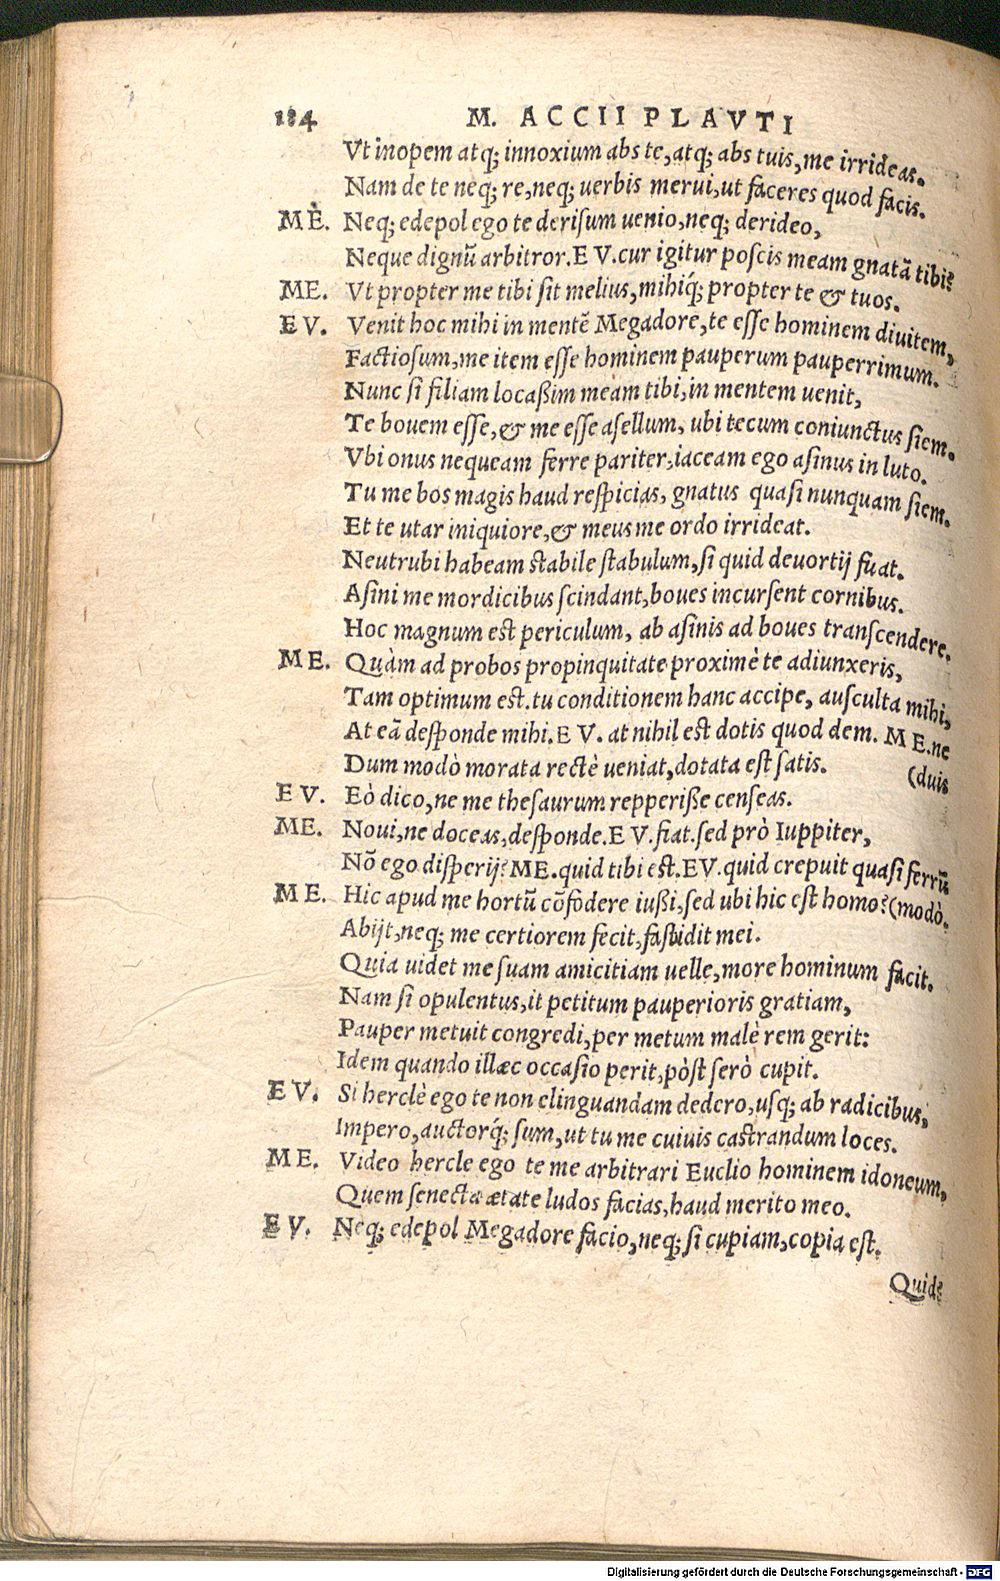 184 M. ACCII PLAVTI
Vt inopem atq; innoxium abs te, atq; abs tuis, me irrideas.
Nam de te neq; re, neq; uerbis merui, ut faceres quod facis.
ME. Neq; edepol ego te derisum uenio, neq; derideo,
Neque dignũ arbitror. EV. cur igitur poscis meam gnatã tibi?
ME. Vt propter me tibi sit melius, mihiq́; propter te & tuos.
EV. Venit hoc mihi in mentẽ Megadore, te esse hominem diuitem,
Factiosum, me item esse hominem pauperum pauperrimum.
Nunc si filiam locaßim meam tibi, in mentem uenit,
Te bouem esse, & me esse asellum, ubi tecum coniunctus siem.
Vbi onus nequeam ferre pariter, iaceam ego asinus in luto.
Tu me bos magis haud respicias, gnatus quasi nunquam siem.
Et te utar iniquiore, & meus me ordo irrideat.
Neutrubi habeam stabile stabulum, si quid deuortij fuat.
Asini me mordicibus scindant, boues incursent cornibus.
Hoc magnum est periculum, ab asinis ad boues transcendere.
ME. Quàm ad probos propinquitate proximè te adiunxeris,
Tam optimum est. tu conditionem hanc accipe, ausculta mihi,
At eã desponde mihi. EV. at nihil est dotis quod dem. ME. ne
Dum modò morata rectè ueniat, dotata est satis. (duis
EV. Eò dico, ne me thesaurum repperiße censeas.
ME. Noui, ne doceas, desponde. EV. fiat. sed prò Iuppiter,
Nõ ego disperij? ME. quid tibi est. EV. quid crepuit quasi ferrũ
ME. Hic apud me hortũ cõfodere iußi, sed ubi hic est homo? (modò.
Abijt, neq; me certiorem fecit, fastidit mei.
Quia uidet me suam amicitiam uelle, more hominum facit.
Nam si opulentus, it petitum pauperioris gratiam,
Pauper metuit congredi, per metum malè rem gerit:
Idem quando illæc occasio perit, pòst serò cupit.
EV. Si herclè ego te non elinguandam dedero, usq; ab radicibus,
Impero, auctorq́; sum, ut tu me cuiuis castrandum loces.
ME. Video hercle ego te me arbitrari Euclio hominem idoneum,
Quem senecta ætate ludos facias, haud merito meo.
EV. Neq; edepol Megadore facio, neq; si cupiam, copia est.
Quid?
Digitalisierung gefördert durch die Deutsche Forschungsgemeinschaft - DFG